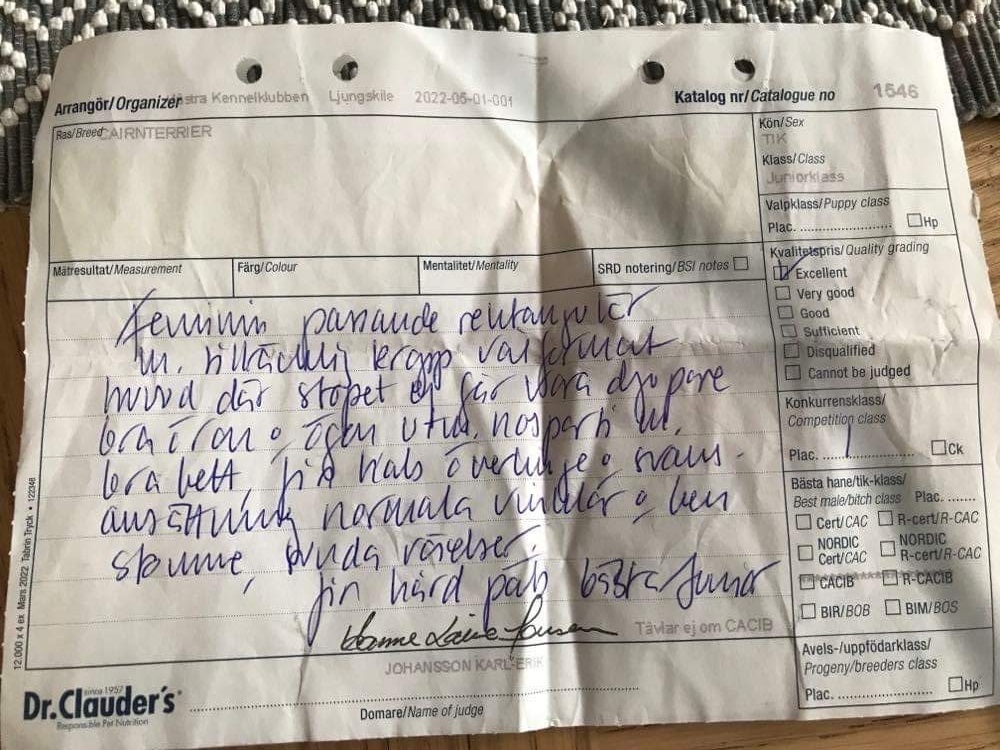 Arrangör/Organizer stra Kennelklubben Ljungskile 2022-05-01-001
Katalog nr/Catalogue no 1546
Ras/Breed CAIRNTERRIER
Kön/Sex
TIK
Klass/Class
Juniorklass
Valpklass/Puppy class
Plac. .......................... Hp
Mätresultat/Measurement
Färg/Colour
Mentalitet/Mentality
SRD notering/BSI notes
Kvalitetspris/Quality grading
Excellent
Very good
Good
Sufficient
Disqualified
Cannot be judged
Konkurrensklass/
Competition class
Plac. ...... 1 ...... Ck
Bästa hane/tik-klass/
Best male/bitch class Plac. .......
Cert/CAC R-cert/R-CAC
NORDIC Cert/CAC
NORDIC R-cert/R-CAC
CACIB R-CACIB
BIR/BOB BIM/BOS
Avels-/uppfödarklass/
Progeny/breeders class
Plac. .......................... Hp
Feminin passande rektangulär
tillräcklig kropp, välformat
huvud där stopet ej får vara djupare
bra öron o ögon nosparti
bra bett, fin hals överlinje o svans-
ansättning normala vinklar o ben
stomme, sunda rörelser.
fin hård päls bästa Junior
Tävlar ej om CACIB
JOHANSSON KARL-ERIK
Domare/Name of judge
since 1957
Dr.Clauder's
Responsible Pet Nutrition
12.000 x 4 ex Mars 2022 Tabrin Tryck • 122348